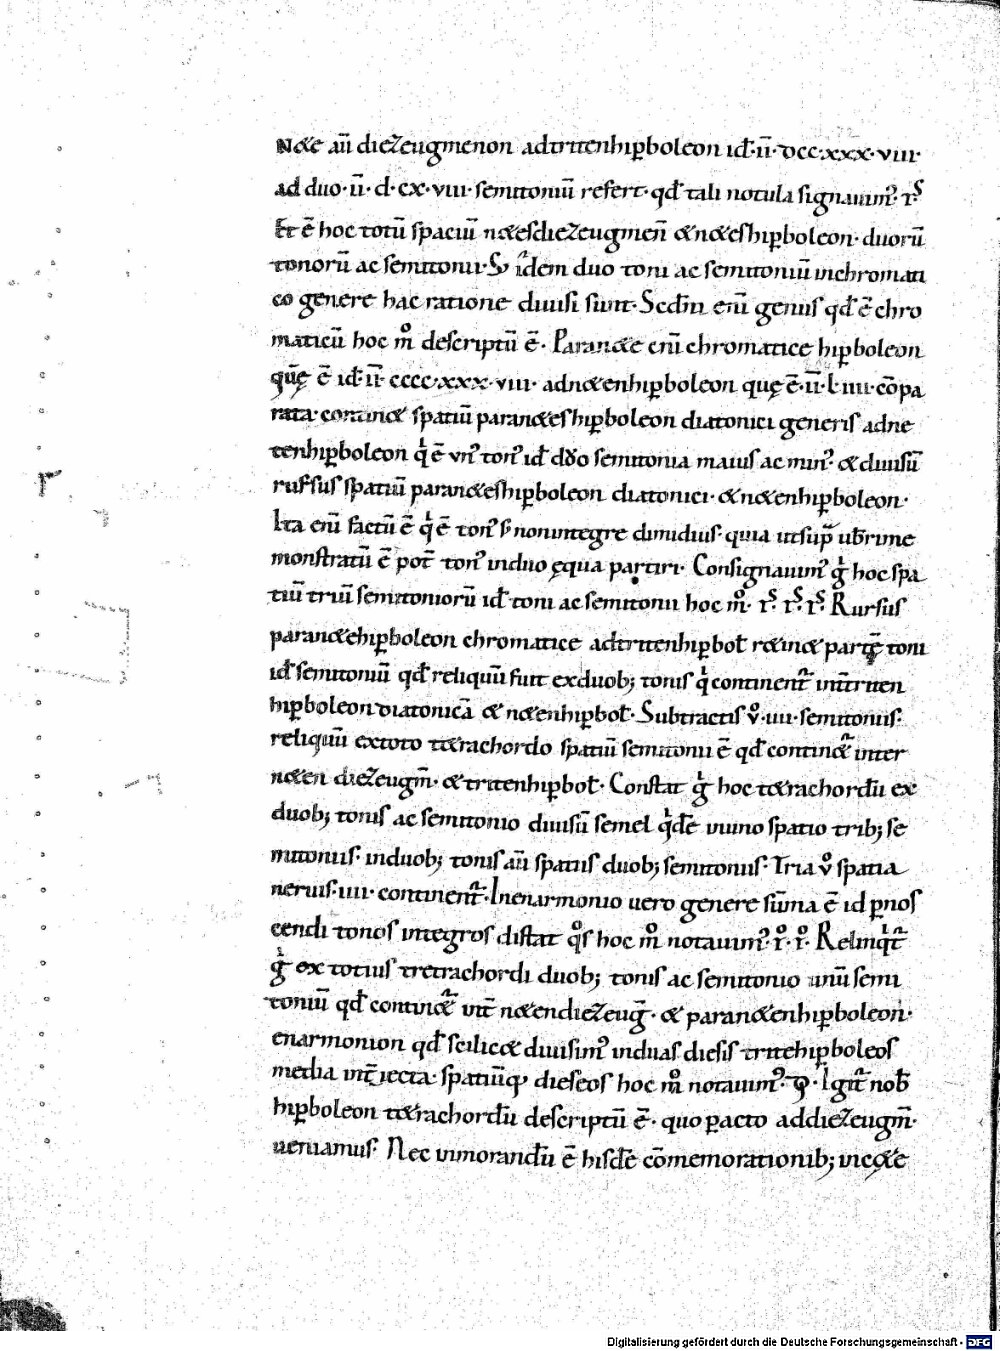 N&e aū diezeugmenon adtritenhiꝑboleon id·ii̅·dccxxx·viii·
ad duo·ii̅·d·cx·viii·semitoniū refert·qđ tali notula signauim᾿·
Et ē hoc totū spaciū n&esdiezeugmen̄ &n&eshiꝑboleon· duorū
tonorū ac semitonii· idem duo toni ac semitoniū inchromati
co genere hac ratione diuisi sunt· Scd̄m enī genus qđ ē chro
maticū hoc m̊ descriptū ē· Paran&e enī chromatice hiꝑboleon
quę̄ ē id·ii̅·cccc·xxx·viii· adn&enhiꝑboleon quę ē·ii̅·l·iiii·cōpa
rata·contin& spatiū paran&eshiꝑboleon diatonici generis adne
tenhiꝑboleon q̍ ē vn᾿ ton᾿ id duo semitonia maius ac min᾿· & diuisū
rursus spatiū paran&eshiꝑboleon diatonici· &n&enhiꝑboleon·
Ita enī factū ē q̍ ē ton᾿ s; nonintegre dimidius· quia utsup̄ ub̄rime
monstratū ē pot̄ ton᾿ induo ęqua partiri· Consignauim᾿ g̍ hoc spa
tiū triū semitoniorū id toni ac semitonii hoc m̊· Rursus
paran&ehiꝑboleon chromatice adtritenhiꝑbol̄ r&in& partę̄ toni
id semitoniū qđ reliquū fuit exduob; tonis q̍ continent̃ int̄triten
hiꝑboleon diatonicā & n&enhiꝑbol̄· Subtractis v̊·iiii·semitoniis·
reliquū extoto t&rachordo spatiū semitonii ē qđ contin&̃ inter
n&en diezeugm̄· &tritenhiꝑbol̄· Constat g̍ hoc t&rachordū ex
duob; tonis ac semitonio diuisū semel q̍dē uiuno spatio trib; se
mitoniis· induob; tonis aū spatiis duob; semitoniis· Tria v̊ spatia
neruis·iiii·continent̃· Inenarmonio uero genere sūma ē id ꝑnos
cendi tonos integros distat q̊s hoc m̊ notauim᾿· Relinq̍t̃
g̍ ex totius tretrachordi duob; tonis ac semitonio unū semi
toniū qđ contin&̃ int̄ n&endiezeug̃· & paran&enhiꝑboleon·
enarmonion qđ scilic& diuisim᾿ induas diesis tritehiꝑboleos
media int̄iecta· spatiūq; dieseos hoc m̊ notauim᾿· Igit̃ nob̄
hiꝑboleon t&rachordū descriptū ē· quo ꝑacto addiezeugm̄·
ueniamus· Nec uimorandū ē hisdē cōmemorationib; uic&e
Digitalisierung gefördert durch die Deutsche Forschungsgemeinschaft - DFG